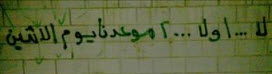 لا ... اولا ... آ موعدنا يوم الاثنين